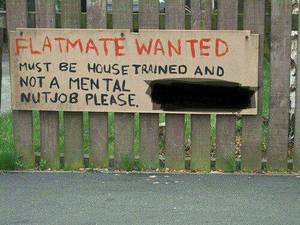 FLATMATE WANTED
MUST BE HOUSE TRAINED AND
NOT A MENTAL
NUTJOB PLEASE.